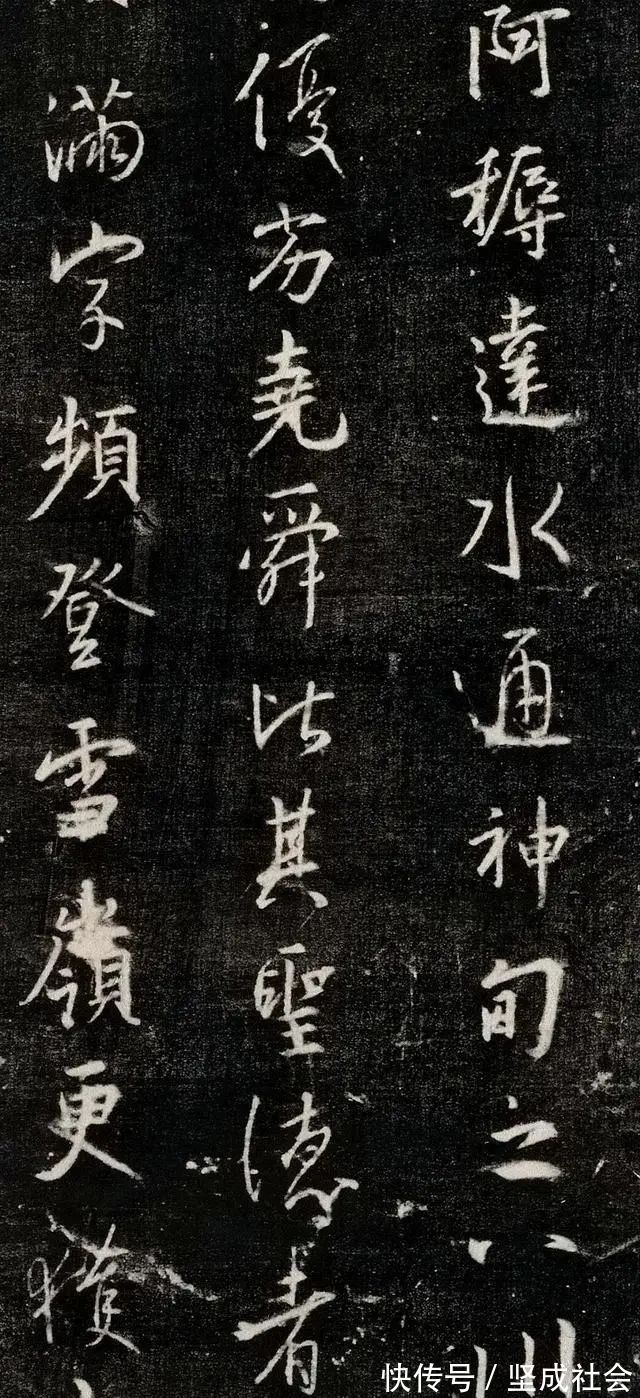 阿耨達水通神旬之八川
優劣堯舜比其聖德者
滿字頻登雪嶺更獲
快传号/坚成社会